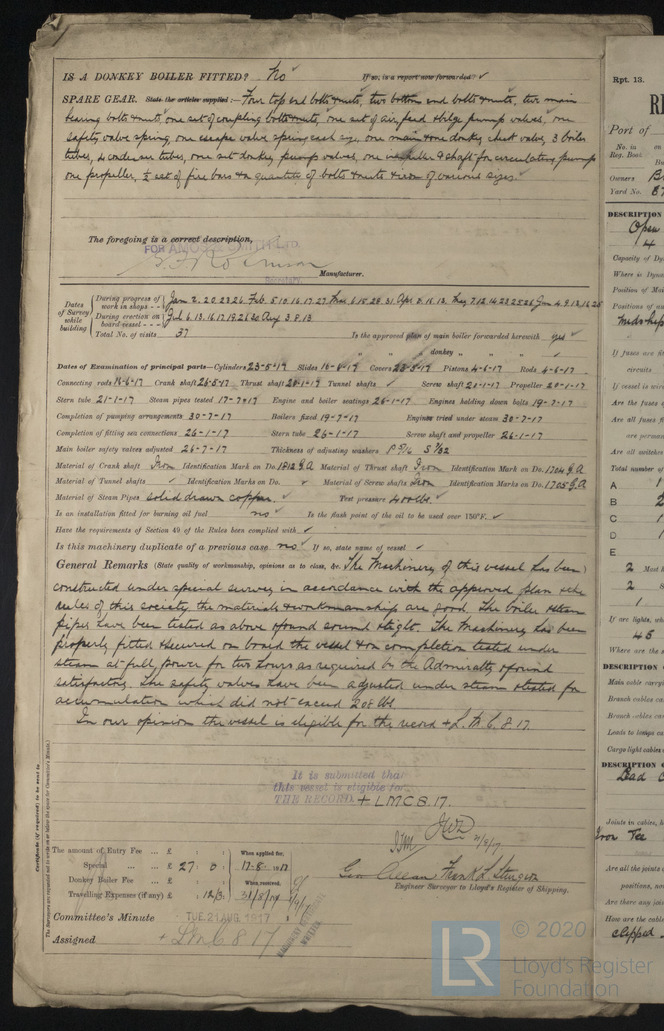 IS A DONKEY BOILER FITTED? No If so, is a report now forwarded? ✓
SPARE GEAR. State the articles supplied:— Four top end bolts & nuts, two bottom end bolts & nuts, two main
bearing bolts & nuts, one set of coupling bolts & nuts, one set of air, feed & bilge pump valves, one
safety valve spring, one escape valve spring each size, one main & one donkey check valve, 3 boiler
tubes, 4 condenser tubes, one set donkey pump valves, one impeller & shaft for circulating pump
one propeller, ½ set of fire bars & a quantity of bolts & nuts & iron of various sizes ✓
The foregoing is a correct description,
FOR AMOS & SMITH LTD.
Secretary. Manufacturer.
Dates of Survey while building
During progress of work in shops - - Jan 2. 20 23 26. Feb 5 10 16 17. 27 Mar 6 15 28. 31 Apr 5. 15. 13. May 7. 12 14 23 25 26 Jun 4 9 13 16 25
During erection on board vessel - - - Jul 6. 13. 16 17 19. 21 30 Aug 3 8. 13
Total No. of visits 37 Is the approved plan of main boiler forwarded herewith yes ✓
" " " donkey " " "
Dates of Examination of principal parts—Cylinders 23-5-17 Slides 16-6-17 Covers 23-5-17 Pistons 4-6-17 Rods 4-6-17
Connecting rods 16-6-17 Crank shaft 26-5-17 Thrust shaft 20-1-17 Tunnel shafts ✓ Screw shaft 20-1-17 Propeller 20-1-17
Stern tube 21-1-17 Steam pipes tested 17-7-17 Engine and boiler seatings 26-1-17 Engines holding down bolts 19-7-17
Completion of pumping arrangements 30-7-17 Boilers fixed 19-7-17 Engines tried under steam 30-7-17
Completion of fitting sea connections 26-1-17 Stern tube 26-1-17 Screw shaft and propeller 26-1-17
Main boiler safety valves adjusted 26-7-17 Thickness of adjusting washers P 5/16 S 9/32
Material of Crank shaft Iron Identification Mark on Do. 1812 G.A Material of Thrust shaft Iron Identification Mark on Do. 1704 G.A
Material of Tunnel shafts ✓ Identification Marks on Do. ✓ Material of Screw shafts Iron Identification Marks on Do. 1705 G.A
Material of Steam Pipes solid drawn copper. ✓ Test pressure 400 lbs. ✓
Is an installation fitted for burning oil fuel no ✓ Is the flash point of the oil to be used over 150°F. ✓
Have the requirements of Section 49 of the Rules been complied with ✓
Is this machinery duplicate of a previous case no ✓ If so, state name of vessel ✓
General Remarks (State quality of workmanship, opinions as to class, &c. The Machinery of this vessel has been
constructed under special survey in accordance with the approved plan & the
rules of this society, the materials & workmanship are good. The boiler & steam
pipes have been tested as above & found sound & tight. The Machinery has been
properly fitted & secured on board the vessel & on completion tested under
steam at full power for two hours as required by the Admiralty & found
satisfactory. The safety valves have been adjusted under steam & tested for
accumulation which did not exceed 208 lbs.
In our opinion the vessel is eligible for the record + L.M.C. 8.17.
It is submitted that
this vessel is eligible for
THE RECORD. + LMC 8.17.
JWD
21/8/17
The amount of Entry Fee ... £ : : When applied for,
Special ... £ 27 : 3 : 17-8-1917
Donkey Boiler Fee ... £ : : When received,
Travelling Expenses (if any) £ : 12/3 : 31/8/17
Geo Allan Frank L. Sturgeon
Engineer Surveyor to Lloyd's Register of Shipping.
Committee's Minute TUE. 21 AUG. 1917
Assigned + LMC 8 17
MACHINERY CERTIFICATE WRITTEN
Certificate (if required) to be sent to
The Surveyors are requested not to write on or below the space for Committee's Minute.
Rpt. 13.
Port of
No. in Reg. Book
Owners
Yard No.
DESCRIPTION
Open
4
Capacity of Dy
Where is Dyna
Position of Mai
Positions of au
midship
If fuses are fi
circuits
If vessel is wire
Are the fuses
Are all fuses
are perman
Are all switches
Total number of
A 1
B 2
C 1
D 1
E
2 Mast
2
1
If are lights, wh
45
Where are the s
DESCRIPTION
Main cable carryi
Branch cables car
Branch cables car
Leads to lamps ca
Cargo light cables
DESCRIPTION
Lead
Joints in cables, h
Iron Tee
Are all the joints
positions, no
Are there any joi
How are the cable
clipped
© 2020
LR
Lloyd's Register
Foundation